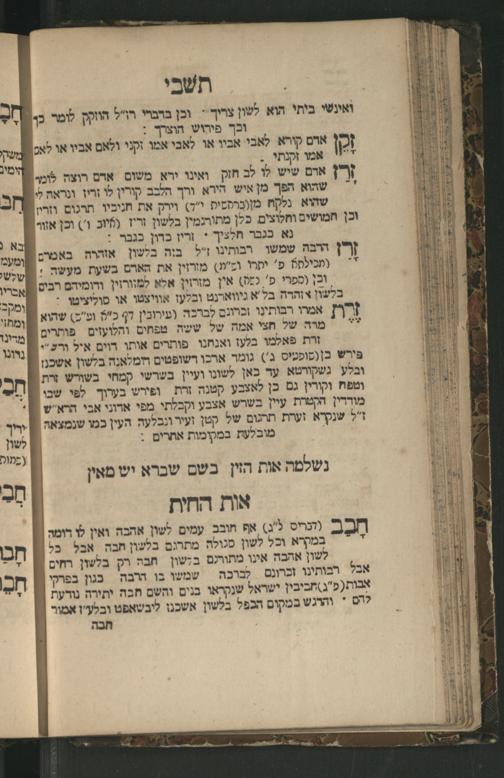 תשבי
ואינשי ביתי הוא לשון צריך וכן בדברי רז"ל הוזקק לומר כך
וכך פירוש הוצרך :
זָקֵן אדם קורא לאבי אביו או לאבי אמו זקני ולאם אביו או לאם
אמו זקנתי
זָרַז אדם שיש לו לב חזק ואינו ירא משום אדם רוצה לומר
שהוא הפך מן איש הירא ורך הלבב קורין לו זריז ונראה לי
שהוא נלקח מן (בראשית י"ד) וירק את חניכיו תרגום וזריז
וכן חמושים וחלוצים כלן מתורגמין בלשון זריז (איוב ו') וכן אזור
נא כגבר חלציך זריז כדון כגבר :
זָרַז הרבה שמשו רבותינו ז"ל בזה בלשון אזהרה באמרם
(מכילתא פ' יתרו) מזרזין את האדם בשעת מעשה :
וכן (ספרי פ' נשא) אין מזרזין אלא למזורזין ודומיהם רבים
בלשון אזהרה בל"א גיווארנט ובלעז אוויצטו או סוליציטו :
זֶרֶת אמרו רבותינו זכרונם לברכה (עירובין דף כ"א) שהוא
מדה של חצי אמה של ששה טפחים והלועזים פותרים
זרת פאלמו בלעז ואנחנו פותרים אותו דוים איל ורש"י
פירש בן (שופטים ג') גומד ארכו דשופטים דומלאנה בלשון אשכנז
ובלע גשקורטא עד כאן לשונו ועיין בשרשי קמחי בשורש זרת
וטפח וקורין גם כן לאצבע קטנה זרת ופירש בערוך לפי שבו
מודדין הקטרת עיין בשרש אצבע וקבלתי מפי אדוני אבי הרא"ש
ז"ל שנקרא זערת תרגום של קטן זעיר ונבלעה העין כמו שנמצאה
מובלעת במקומות אחרים :
נשלמה אות הזין בשם שברא יש מאין
אות החית
חָבַב (דברים ל"ג) אף חובב עמים לשון אהבה ואין לו דומה
במקרא וכל לשון סגולה מתרגם בלשון חבה אבל כל
לשון אהבה אינו מתורגם בלשון חבה רק בלשון רחים
אבל רבותינו זכרונם לברכה שמשו בו הרבה כגון בפרקי
אבות (פ"ג) חביבין ישראל שנקראו בנים והשם חבה יתירה נודעת
להם והדגש במקום הכפל בלשון אשכנז ליבשאפט ובלע"ז אמור
חבה